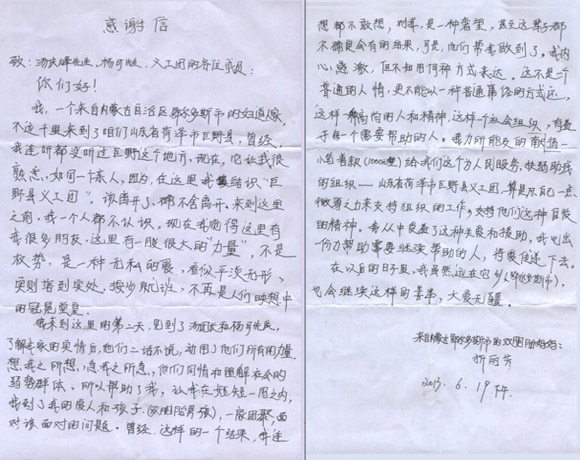 感谢信
致：汤庆峰先生、杨可先生、义工团的各位家庭：
你们好！
我，一个来自内蒙古自治区鄂尔多斯市的妇道人家，
不远千里来到了咱们山东省菏泽市巨野县，曾经，
我连听都没听过巨野这个地方，现在，它让我很
熟悉、如同一个亲人，因为，在这里我结识“巨
野县义工团”。该离开了，都不舍离开，来到这里
之前，我一个人都不认识，现在我觉得这里有
我很多朋友。这里有一股很大的“力量”，不是
权势，是一种无私的爱，看似平淡无形，
实则落到实处，按步就班，不再是人们映想中
的冠冕堂皇。
我来到这里的第二天，见到了汤庆峰和杨可先生，
了解我家的实情后，他们二话不说，动用了他们所有的力量
想我之所想，急我之所急，他们同情和理解社会的
弱势群体、所以帮助了我，让我在短短一周之内，
找到了我的爱人和孩子，一家团聚，面
对该面对的问题。曾经，这样的一个结果，我连
想都不敢想，对我，是一种奢望，甚至这辈子都
不确定会有的结果，可是，他们帮我做到了，我内
心感激，但不知用何种方式表达。这不是个
普通的人情，更不能以一种普通庸俗的方式还，
这样高尚的人和精神，这样一个社会组织，有益
于每一个需要帮助的人。我力所能及的献捐一
小笔善款（1000整）给我们这个为人民服务，扶弱助残
的组织——山东省菏泽市巨野县义工团，算是尽自己一点
微薄之力来支持组织的工作，支持他们这种自发
的精神。我从中受益了这种关爱和援助，我也出
份力帮助需要继续帮助的人，将爱传递下去。
在以后的日子里，我虽然远在它乡（鄂尔多斯市），
也会继续这样的善举，大爱无疆。
来自内蒙古鄂尔多斯市的双胞胎妈妈：
2013.6.19